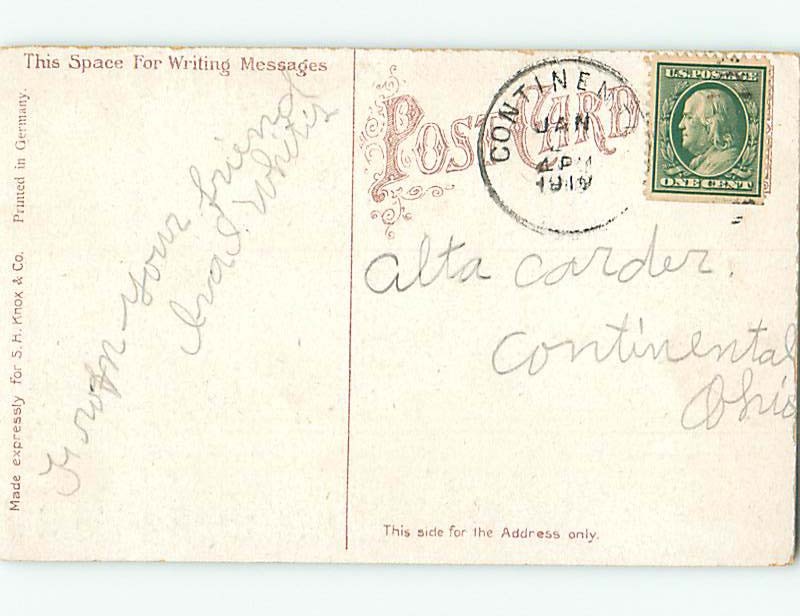 This Space For Writing Messages
Printed in Germany.
Made expressly for S. H. Knox & Co.
From your friend
Post Card
CONTINEN
JAN
4 PM
1910
U.S. POSTAGE
ONE CENT
alta carder.
Continental
Ohio
This side for the Address only.